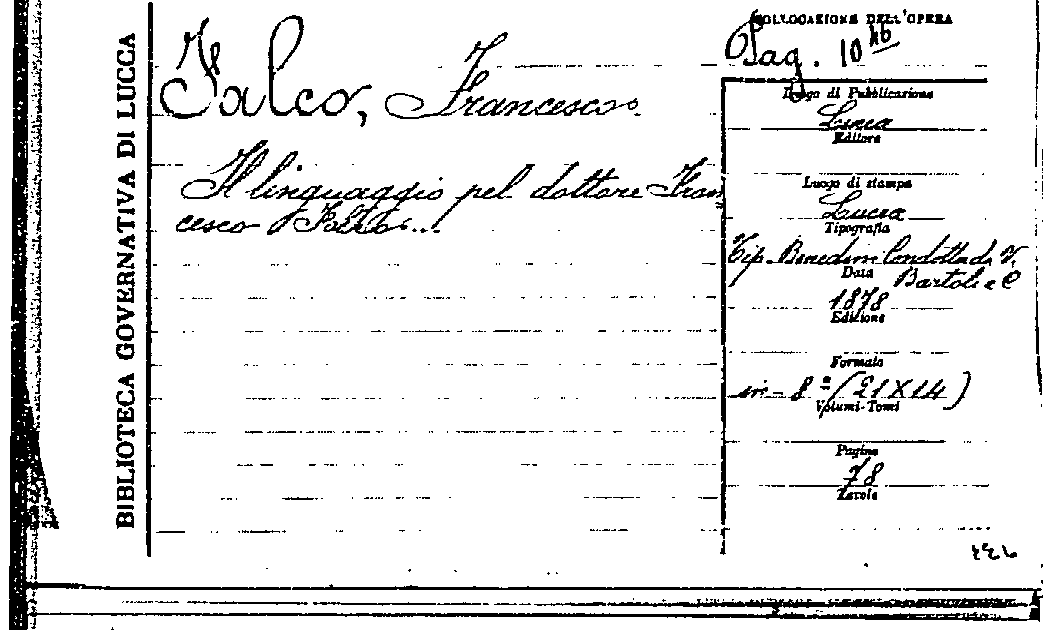 BIBLIOTECA GOVERNATIVA DI LUCCA
Falco, Francesco.
Il linguaggio pel dottore Fran
cesco Falco...
COLLOCAZIONE DELL'OPERA
Pag. 10
Luogo di Pubblicazione
Lucca
Editore
Luogo di stampa
Lucca
Tipografia
Tip. Benedini Condotta da V.
Bartoli e C
Data
1878
Edizione
Formato
in-8º (21X14)
Volumi-Tomi
Pagine
78
Tavole